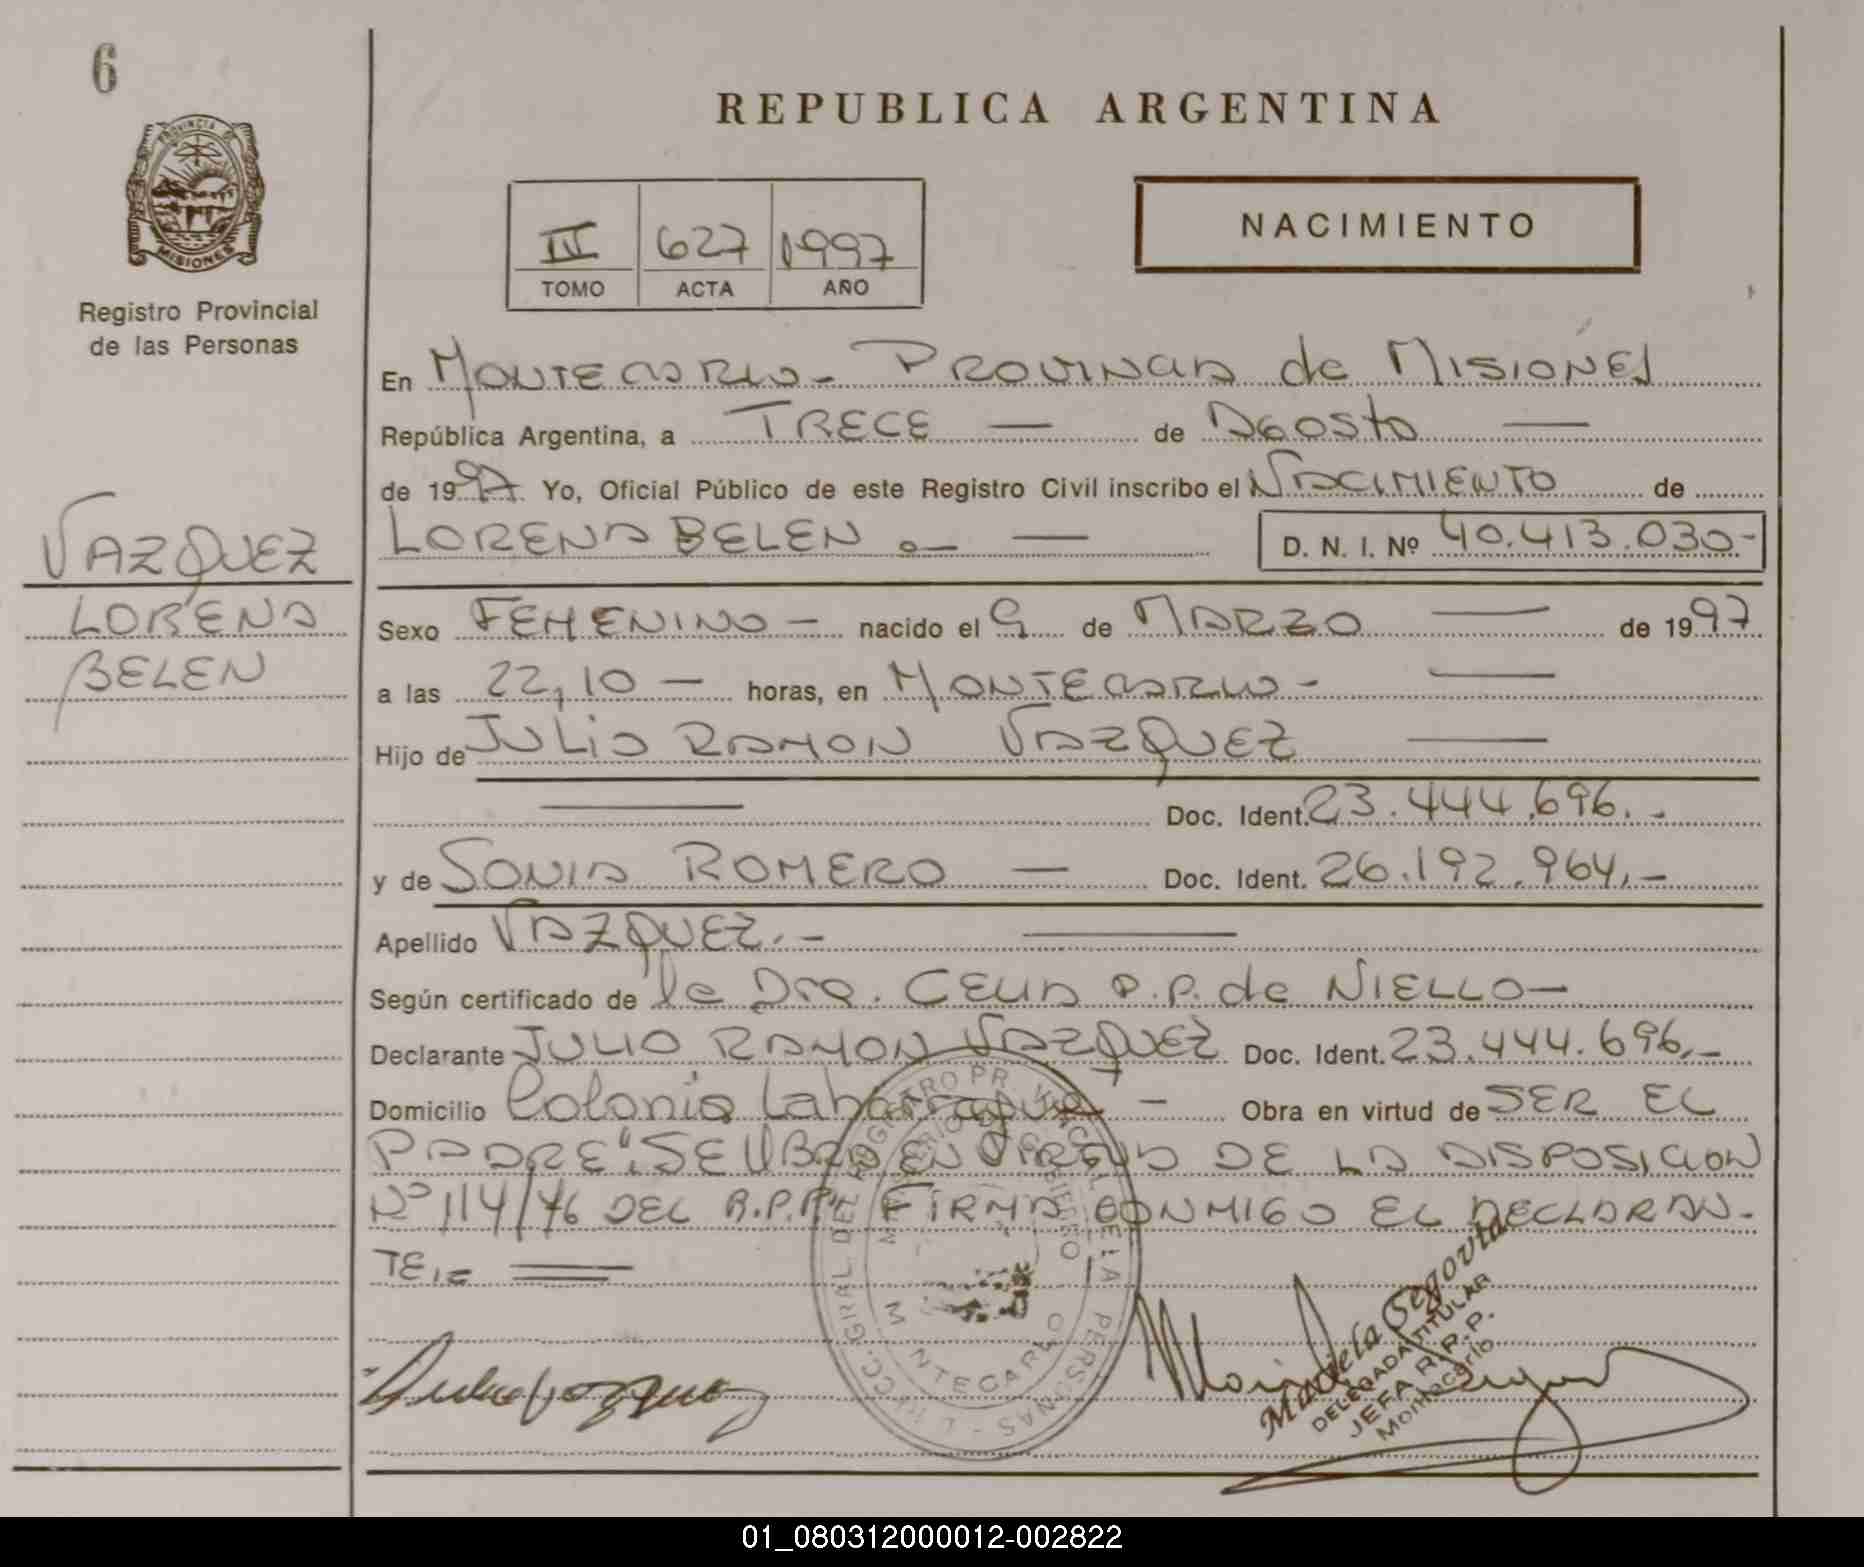 6
PROVINCIA DE
MISIONES
Registro Provincial
de las Personas
VAZQUEZ
LORENA
BELEN
REPUBLICA ARGENTINA
III 627 1997
TOMO ACTA AÑO
NACIMIENTO
En MONTECARLO- PROVINCIA de MISIONES
República Argentina, a TRECE — de AGOSTO —
de 1997 Yo, Oficial Público de este Registro Civil inscribo el NACIMIENTO de
LORENA BELEN — D. N. I. Nº 40.413.030-
Sexo FEMENINO - nacido el 9 de MARZO — de 1997
a las 22,10 — horas, en MONTECARLO- —
Hijo de JULIO RAMON VAZQUEZ —
— Doc. Ident. 23.444.696.-
y de SONIA ROMERO — Doc. Ident. 26.192.964.-
Apellido VAZQUEZ.- —
Según certificado de la Dra. CELIA P.P. de NIELLO—
Declarante JULIO RAMON VAZQUEZ Doc. Ident. 23.444.696.-
Domicilio Colonia - Obra en virtud de SER EL
PADRE". SE LABRA EN VIRTUD DE LA DISPOSICION
Nº 114/76 DEL R.P.P." FIRMA CONMIGO EL DECLARAN-
TE.=
MONTECARLO
Segovia
DELEGADA TITULAR
JEFA R.P.P.
Montecarlo
01_080312000012-002822